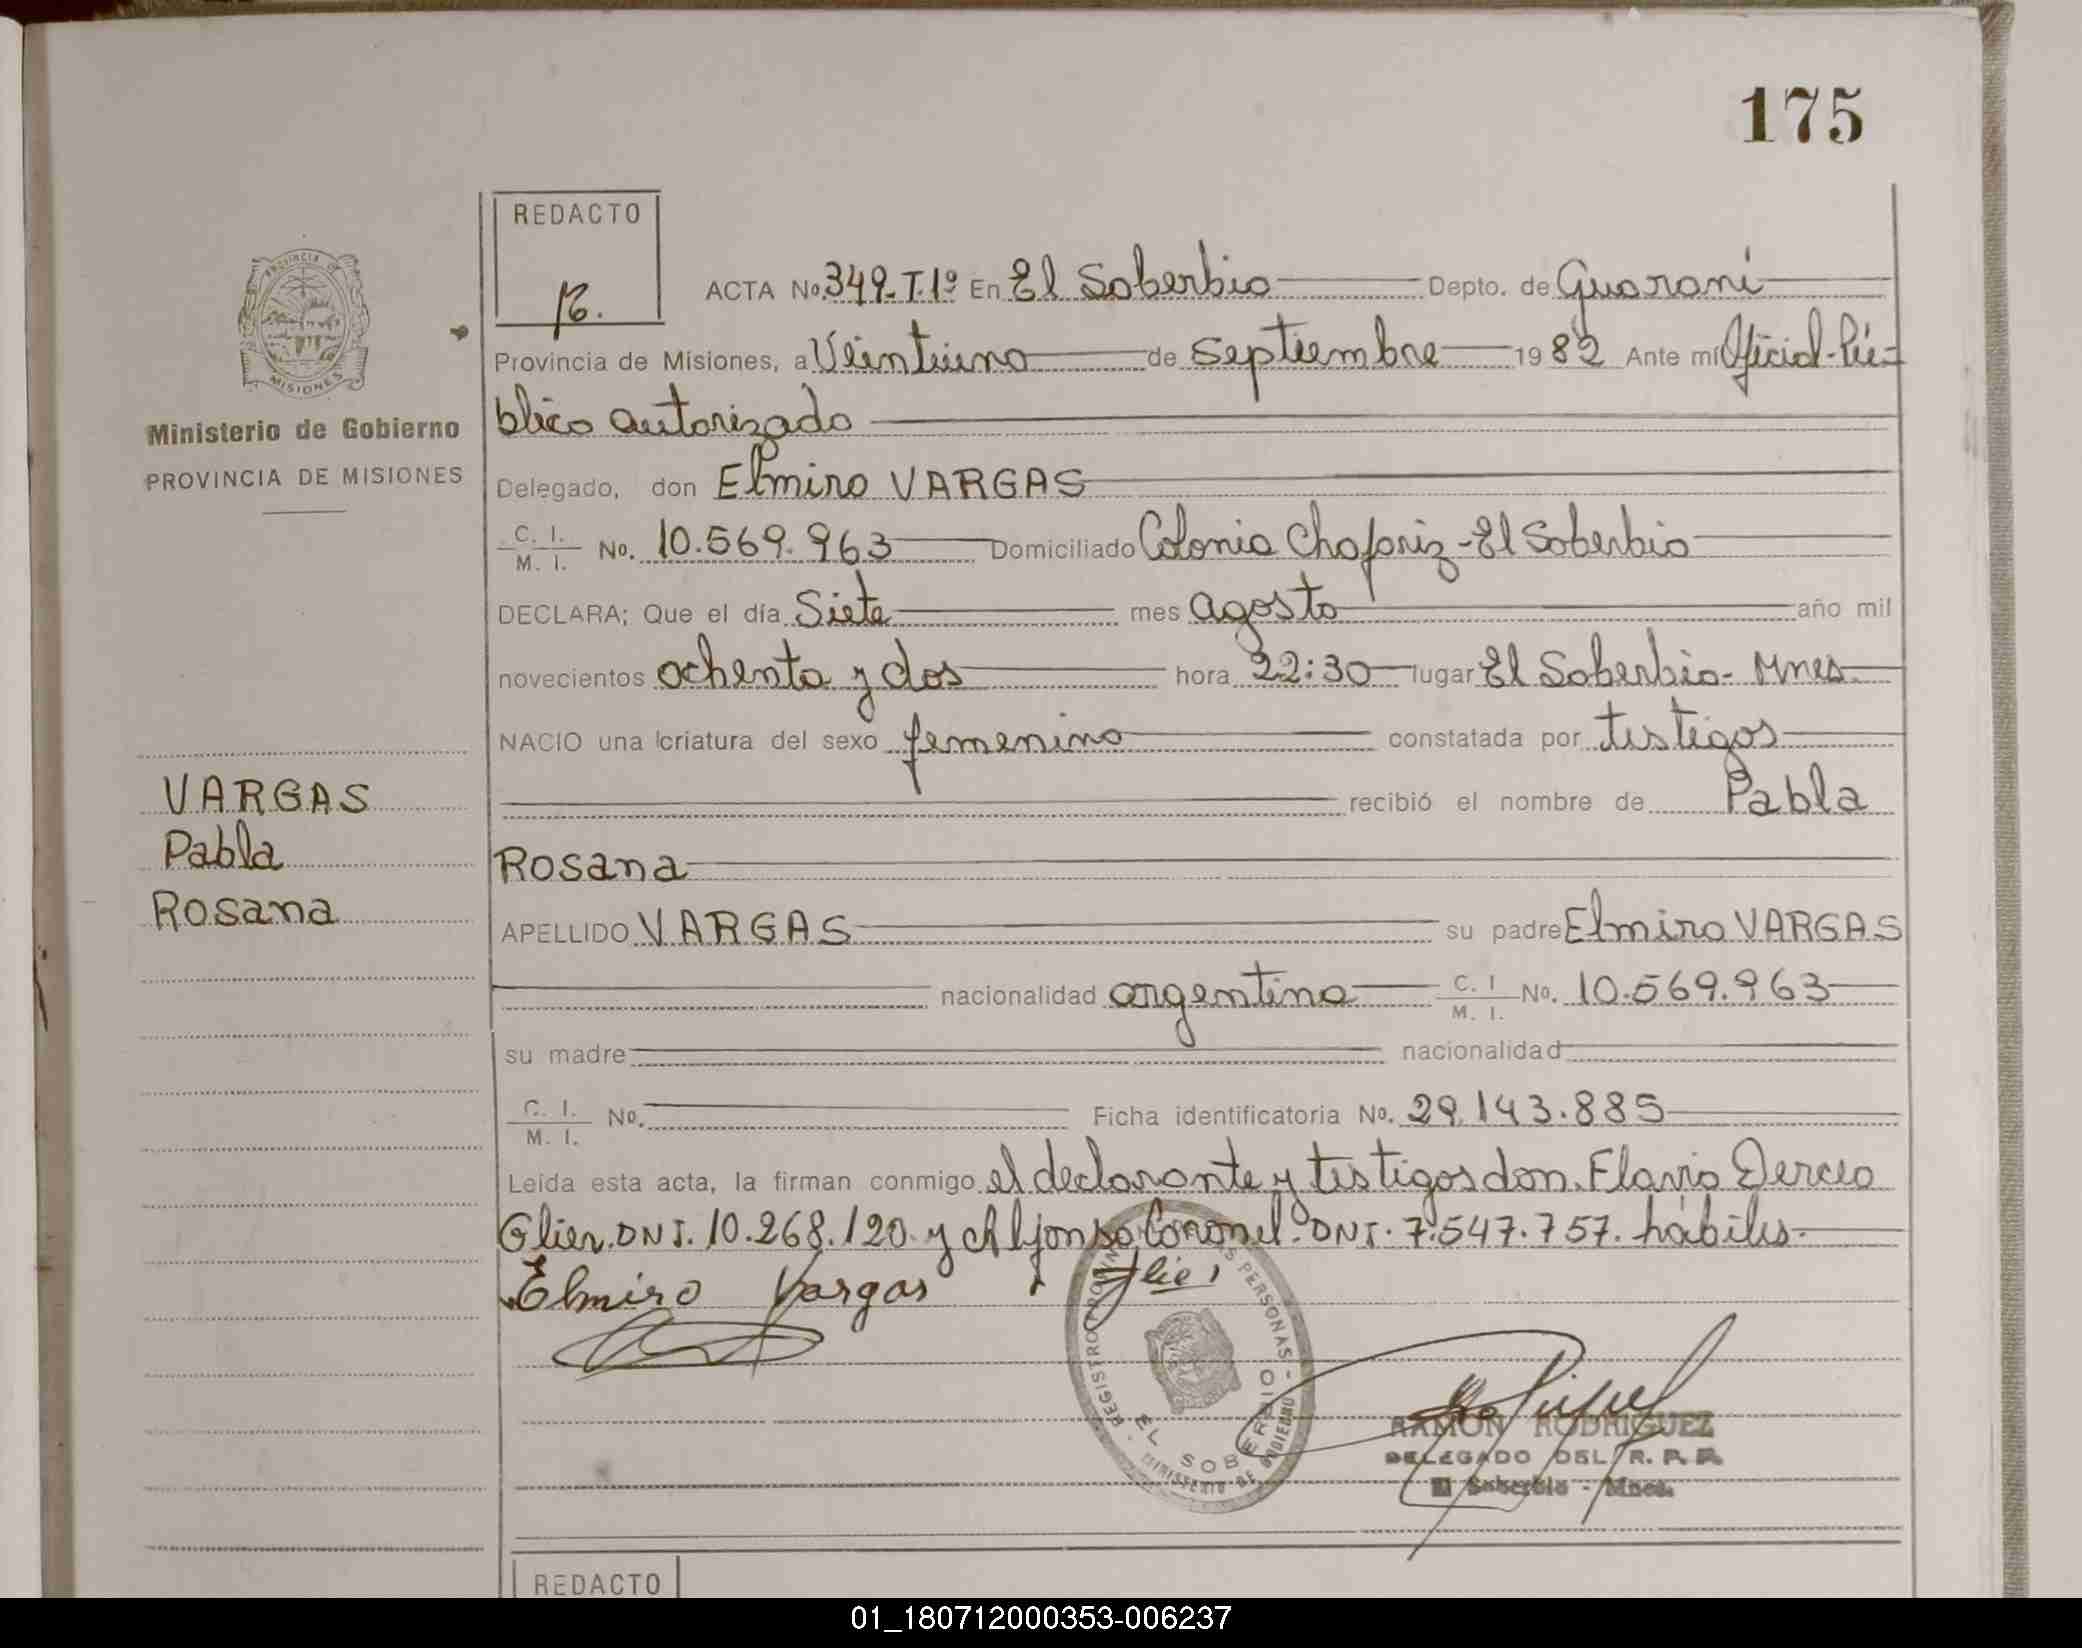 175
REDACTO
PROVINCIA DE MISIONES
Ministerio de Gobierno
PROVINCIA DE MISIONES
ACTA No. 349-T.1º En El Soberbio Depto. de Guaraní
Provincia de Misiones, a Veintiuno de Septiembre 1982 Ante mí Oficial Pú-
blico autorizado
Delegado, don Elmiro VARGAS
C. I. M. I. No. 10.569.963 Domiciliado Colonia Chafariz - El Soberbio
DECLARA; Que el día Siete mes agosto año mil
novecientos ochenta y dos hora 22:30 lugar El Soberbio - Mnes.
NACIO una criatura del sexo femenino constatada por testigos
recibió el nombre de Pabla
Rosana
VARGAS
Pabla
Rosana
APELLIDO VARGAS su padre Elmiro VARGAS
nacionalidad argentina C. I. M. I. No. 10.569.963
su madre nacionalidad
C. I. M. I. No. Ficha identificatoria No. 29.143.885
Leída esta acta, la firman conmigo el declarante y testigos don Flavio Derceo
Glier DNI. 10.268.120 y Alfonso Coronel. DNI. 7.547.757. hábiles.
Elmiro Vargas Glier
REGISTRO PERSONAS
EL SOBERBIO
MINISTERIO DE GOBIERNO
RAMON RODRIGUEZ
DELEGADO DEL R. P. P.
El Soberbio - Mnes.
REDACTO
01_180712000353-006237